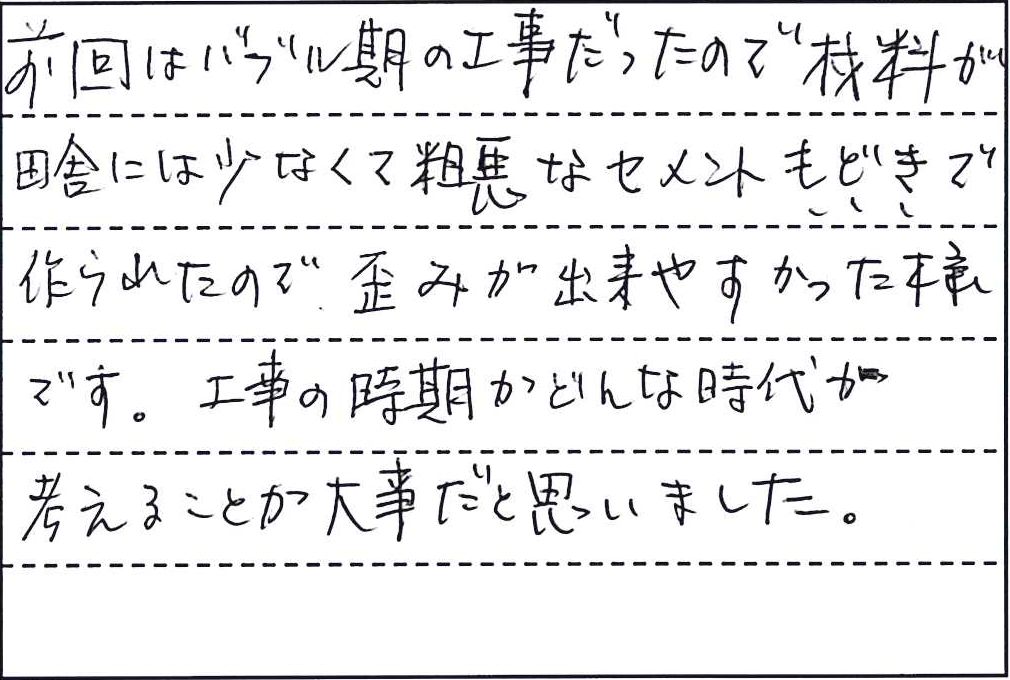 前回はバブル期の工事だったので材料が
田舎には少なくて粗悪なセメントもどきで
作られたので歪みが出来やすかった様
です。工事の時期がどんな時代か
考えることが大事だと思いました。